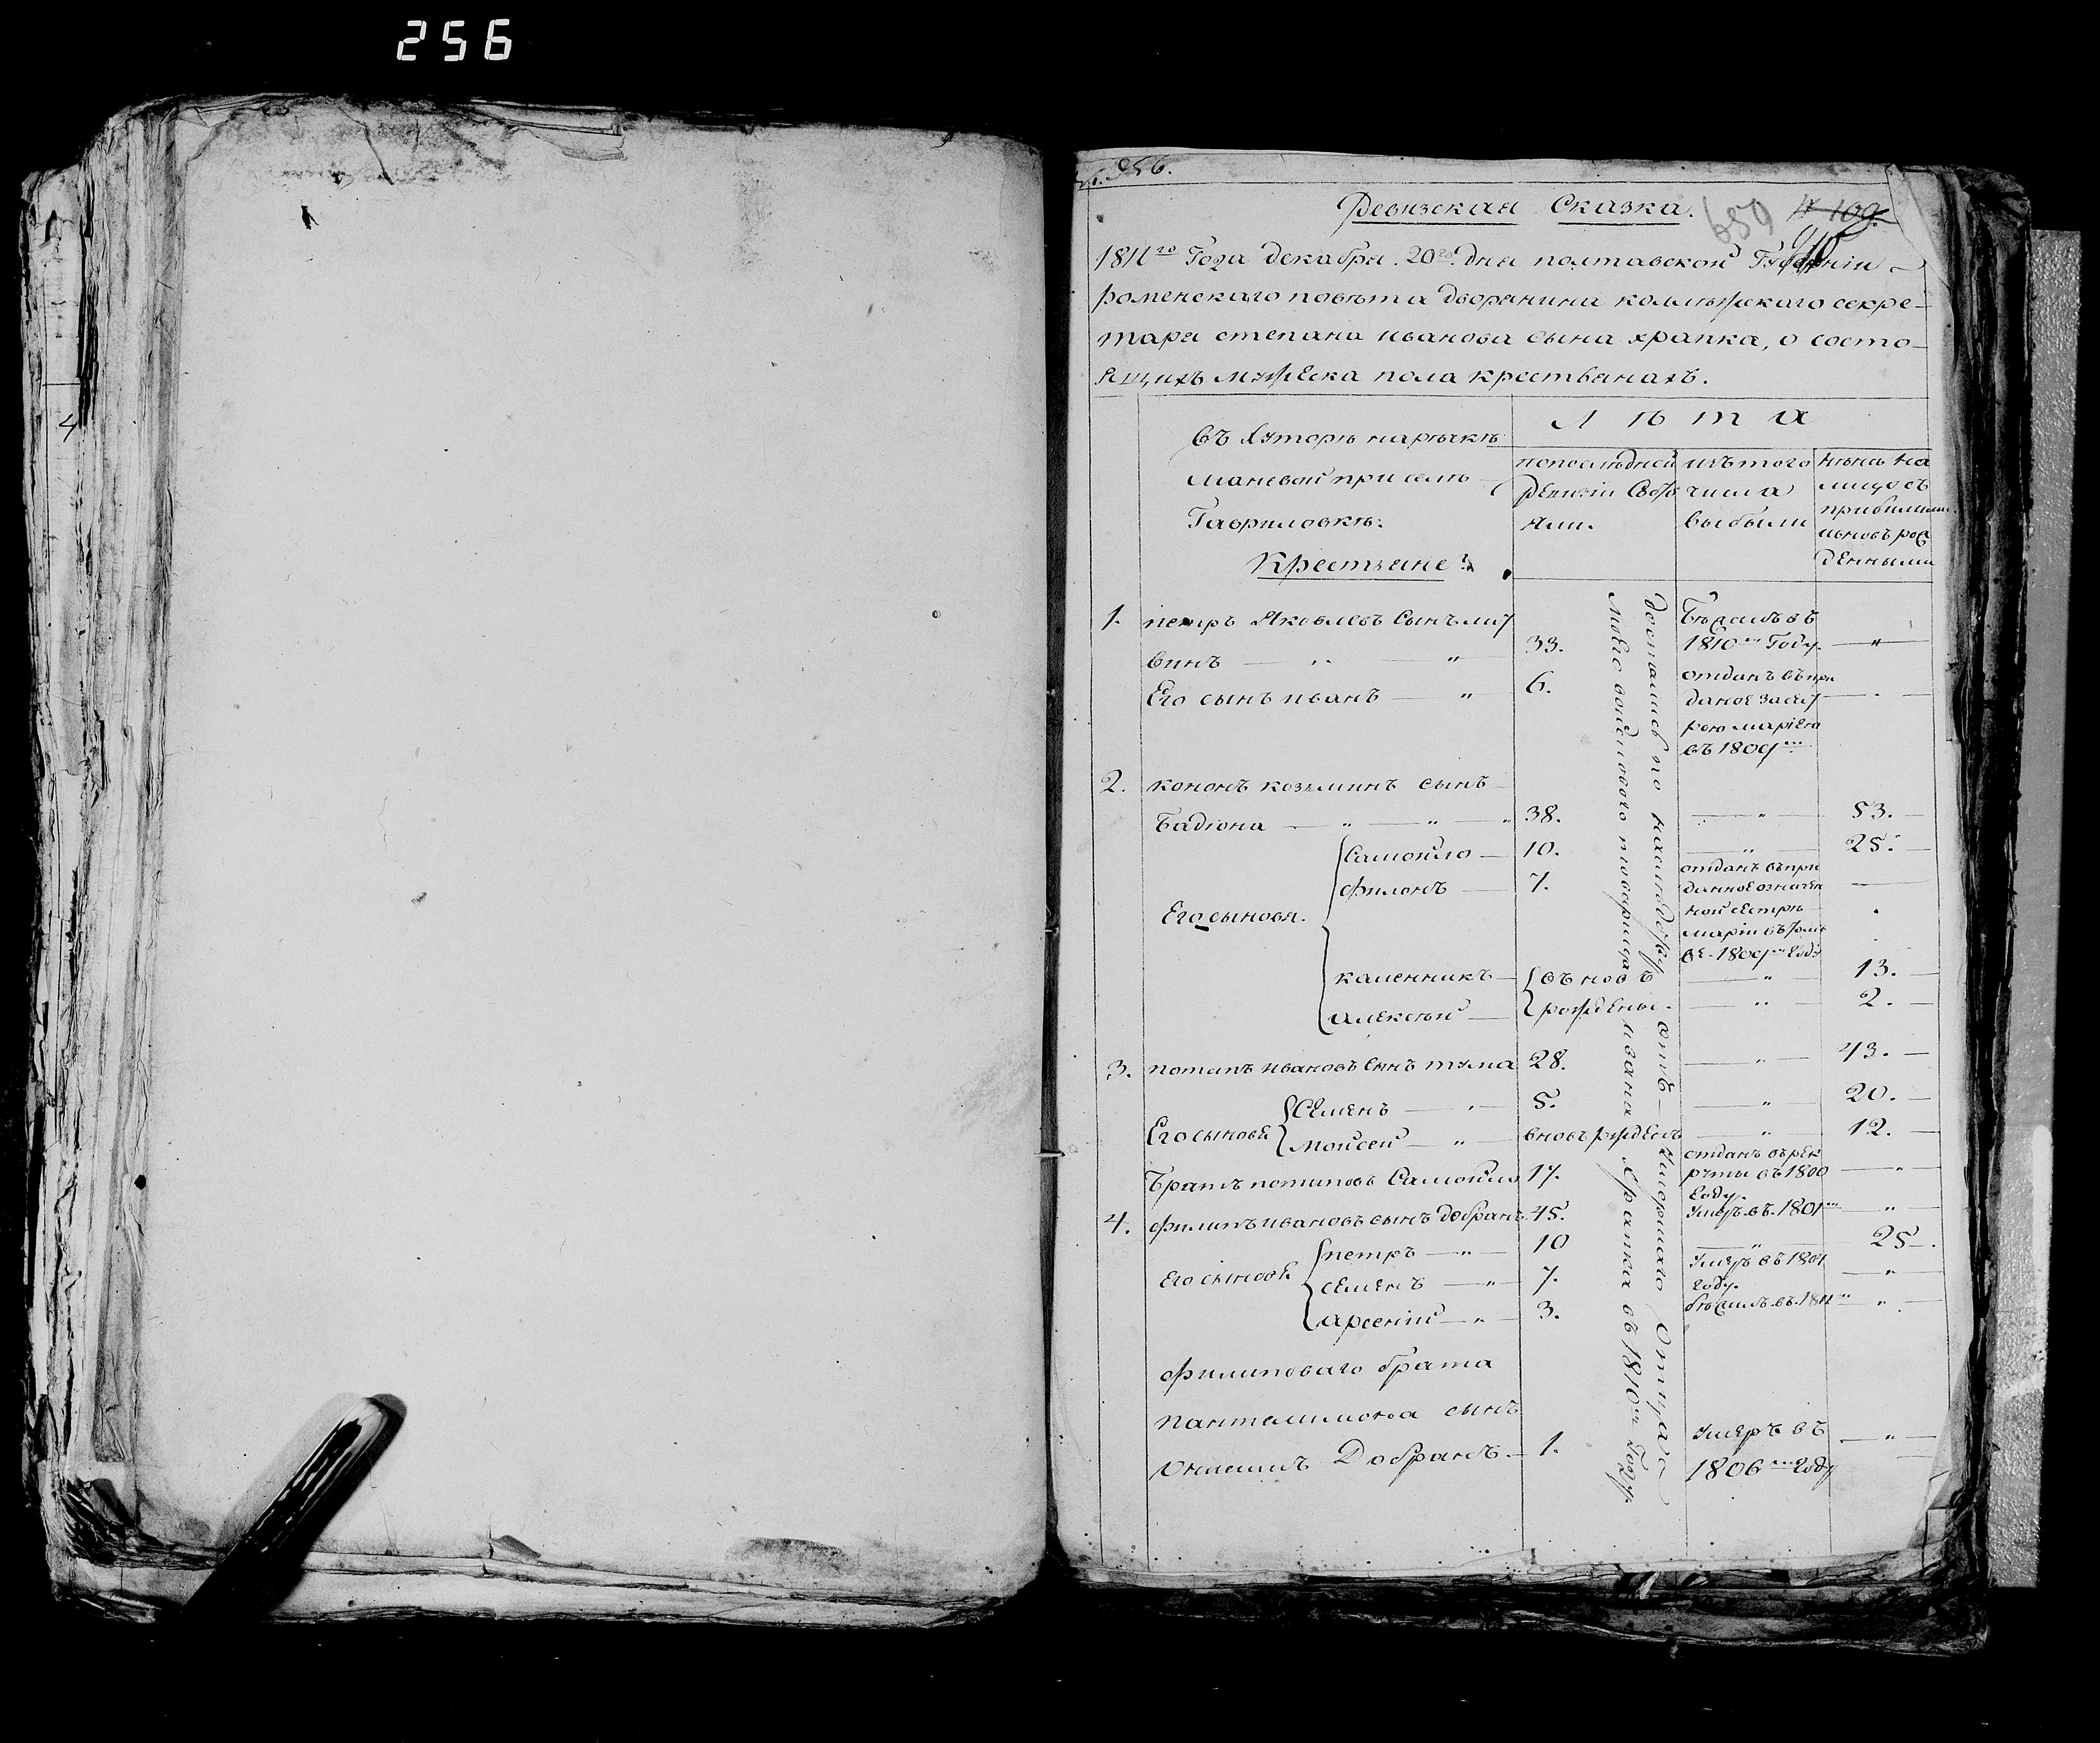 256
4
256.
Ревизская Сказка.
659
№ 109.
1811го Года декабря. 20го. дня полтавской Губерніи
роменскаго повѣта дворянина коллежскаго секре-
таря степана иванова сына храпка, о состо-
ящихъ мужеска пола крестьянахъ.
Лѣта
въ Хуторѣ нарѣчкѣ
при селѣ
Гавриловкѣ:
Крестьяне
попоследней
ревизіи состо
яли.
изътого
числа
выбыли
нынѣ на
лицо съ
прибылыми
ивновь рож
денными
1. петръ Яковлевъ Сынъ лит
винъ — " — " 33. Бѣжалъ въ 1810м Году. — "
Его сынъ иванъ — " 6. отданъ въпри
даное засест
рою маріею
въ 1809м
2. кононъ козминъ сынъ
Бадюна — " — " — " 38. — " — 53. —
Его сыновья.
Самойло — 10. — " — 25. —
филонъ — 7. отданъ въпри
данное означен
ной сестрѣ
маріи въ томъ
же 1809м году
каленникъ — въновь — " — 13. —
алексѣй — рожденые. — " — 2. —
3. потапъ ивановъ сынъ тума 28. — " — 43. —
Его сыновья
Семенъ — " — 5. — " — 20. —
Мойсей — " — вновь рожденъ — " — 12. —
Братъ потаповъ Самойло 17. отданъ въ рек
руты въ 1800
году. — "
4. филипъ ивановъ сынъ добранъ. 45. Умеръ въ. 1801м — "
Его сыновья
петръ — " — 10 — " — 25 —.
семенъ — " — 7. Умеръ въ 1801
году. — "
арсеній — " — 3. бѣжалъ въ. 1811м — "
филиповаго брата
пантелимона сынъ
Добранъ. — 1. Умеръ въ
1806м году — "
доставшись по наследству отъ умершаго Отца
моего войсковаго товарища ивана Храпка въ 1810м Году.